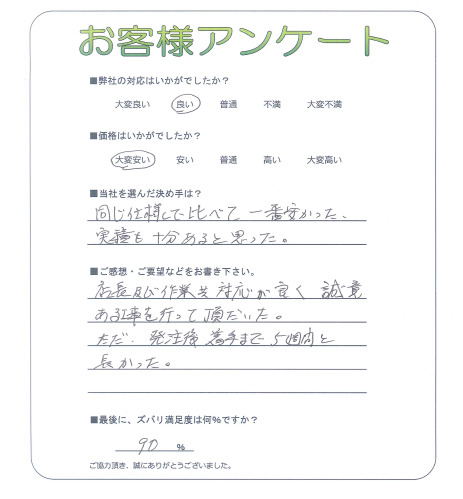 お客様アンケート
■弊社の対応はいかがでしたか？
大変良い 良い 普通 不満 大変不満
■価格はいかがでしたか？
大変安い 安い 普通 高い 大変高い
■当社を選んだ決め手は？
同じ仕様して比べて一番安かった、
実績も十分あると思った。
■ご感想・ご要望などをお書き下さい。
店長及び作業共対応が良く 誠意
ある工事を行って頂だいた。
ただ、発注後着手まで5週間と
長かった。
■最後に、ズバリ満足度は何％ですか？
90 ％
ご協力頂き、誠にありがとうございました。